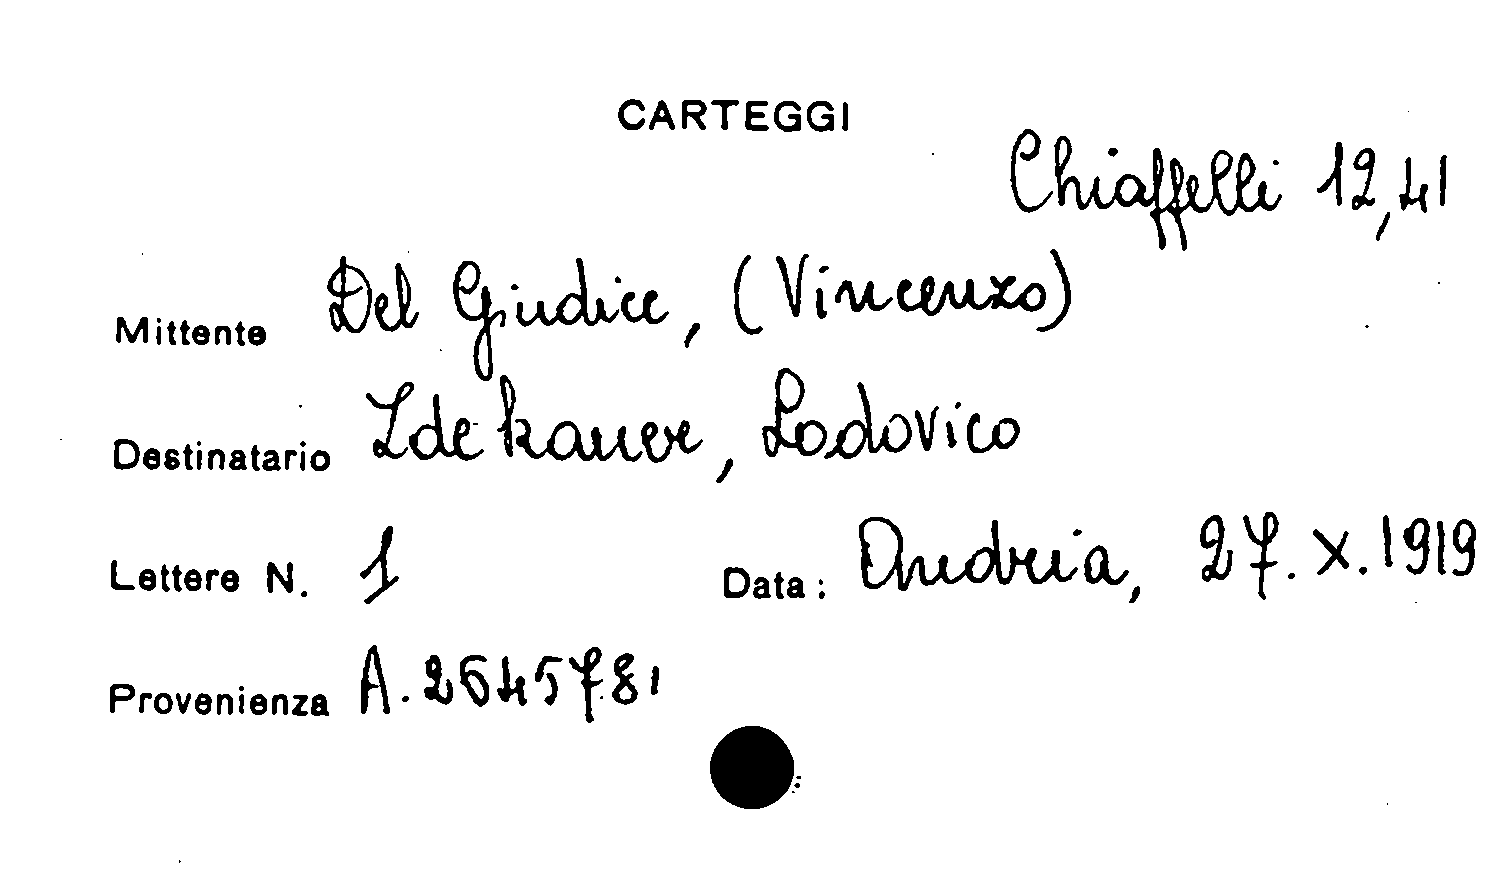 CARTEGGI
Chiaffelli 12,41
Mittente Del Giudice, (Vincenzo)
Destinatario Zdekauer, Lodovico
Lettere N. 1 Data: Andria, 27.X.1919
Provenienza A. 2645781